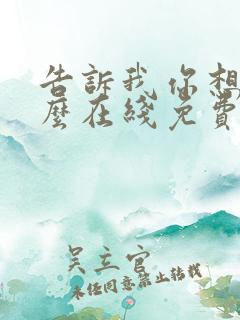 告訴我你想
麼在綫免費
吴主官
未任同意禁止转载